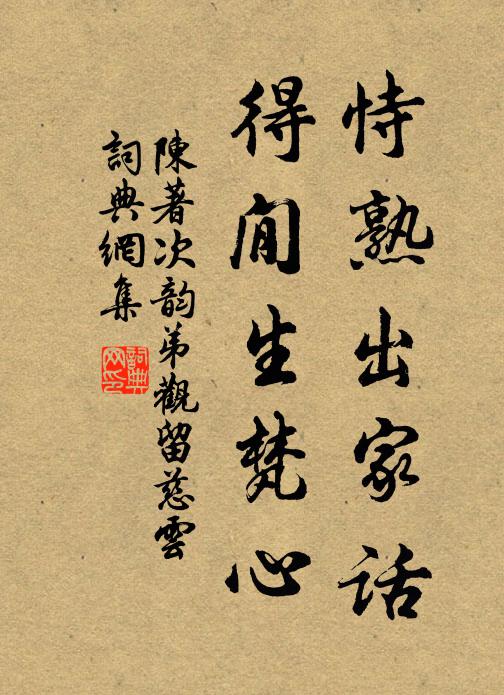 恃熟出家話
得閒生梵心
陳著次韵弟觀留慈雲
詞典網集
詞典網印